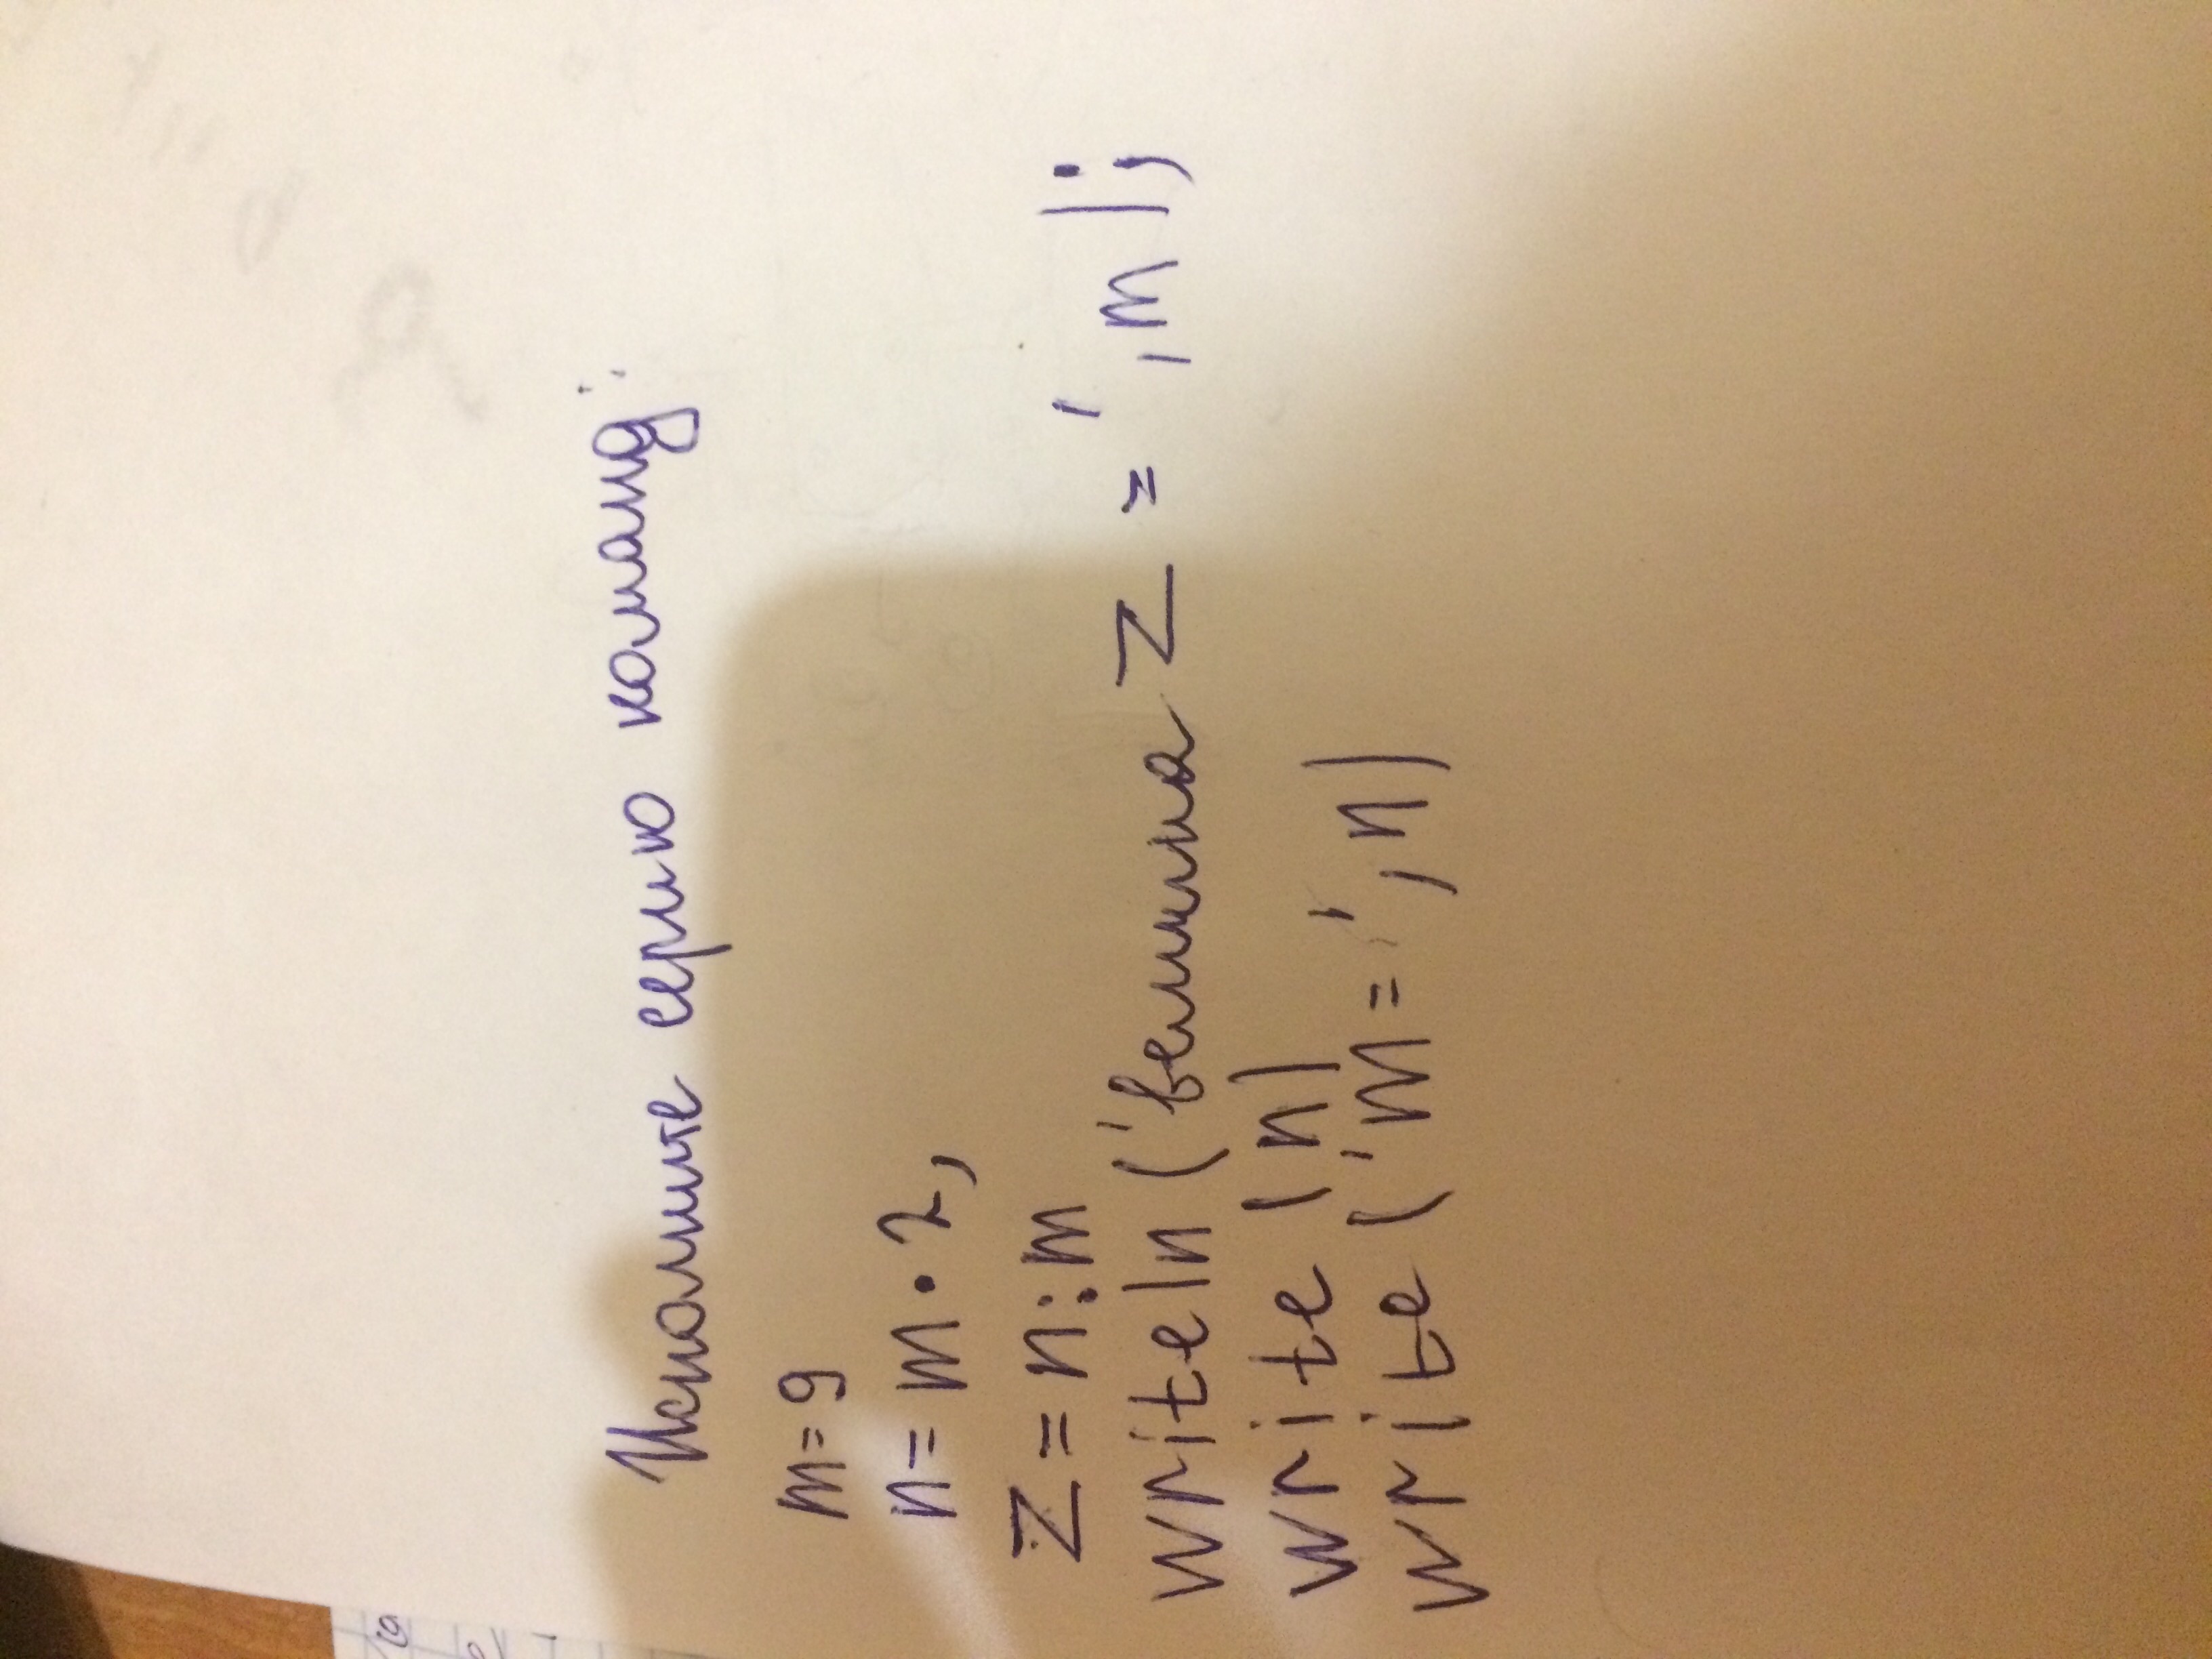 Исполните серию команд:
m=9
n=m·2,
Z=n:m
writeln ('величина Z = ', m);
write (n)
write ('m=', n)